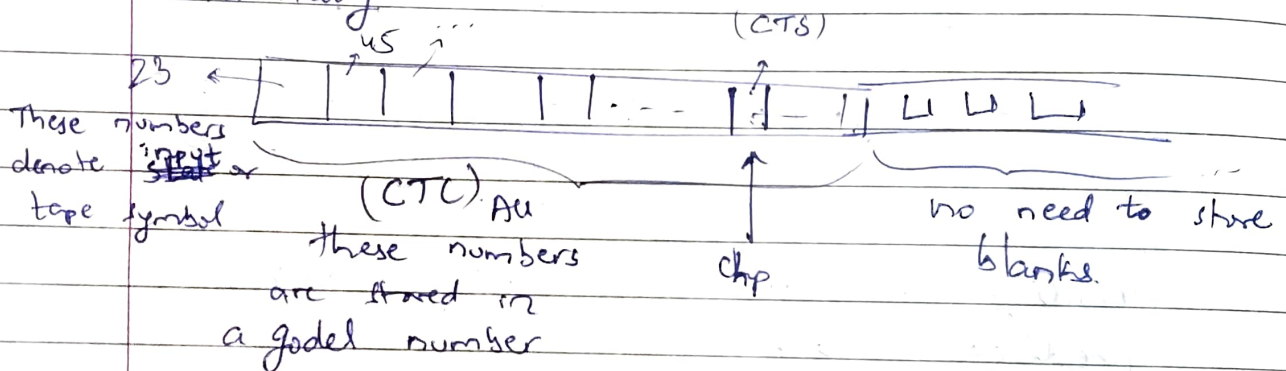 (CTS)
45 ...
23
⊔ ⊔ ⊔
These numbers
denote input or
tape symbol
(CTC) All
these numbers
are stored in
a godel number
chp
no need to store
blanks.